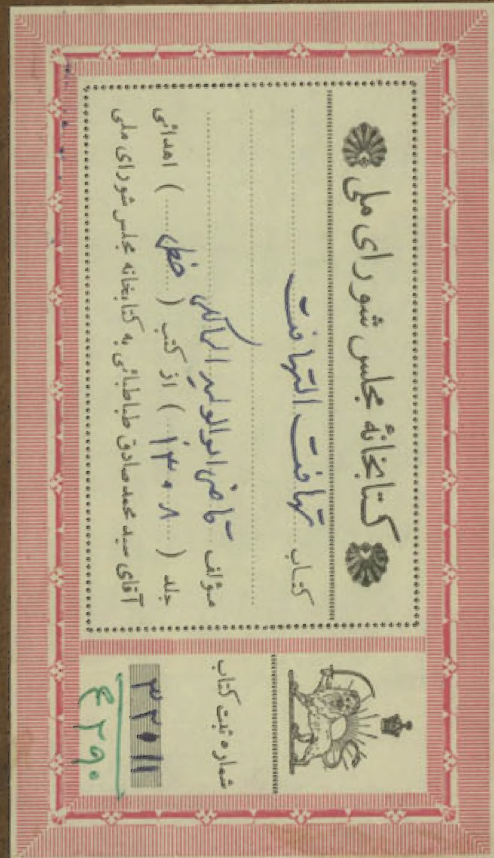 کتابخانهٔ مجلس شورای ملی
کتاب تهافت التهافت
مؤلف قاضی ابوالولید المالکی
جلد ( ۱۳۰۸ ) از کتب ( خطی ) اهدائی
آقای سید محمد صادق طباطبائی به کتابخانه مجلس شورای ملی
شماره ثبت کتاب
۳۳۰۱۱
۴۲۹۰